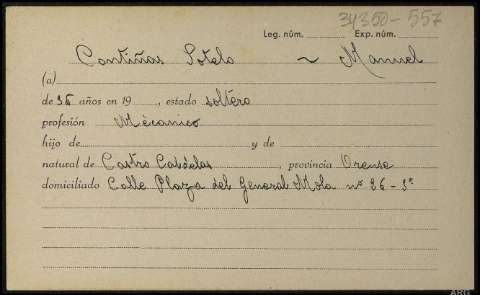 34350-557
Leg. núm. Exp. núm.
Contiñas Sotelo ~ Manuel
(a)
de 36 años en 19 , estado soltero
profesión Mécanico
hijo de y de
natural de Castro Caldelas , provincia Orense
domiciliado Calle Plaza del General Mola nº 26-3º